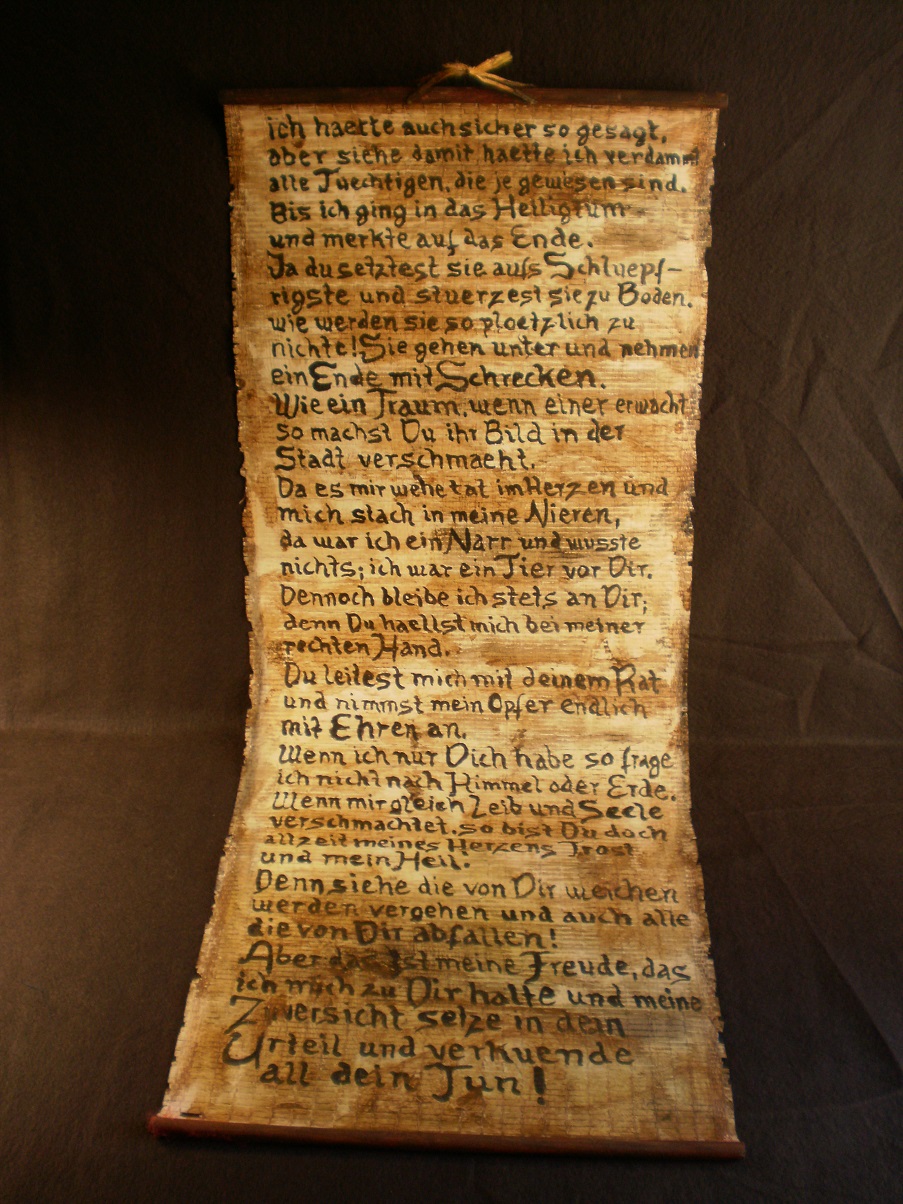 ich haette auch sicher so gesagt,
aber siehe damit haette ich verdammt
alle Tuechtigen, die je gewesen sind.
Bis ich ging in das Heiligtum
und merkte auf das Ende.
Ja du setztest sie aufs Schluepf-
rigste und stuerzest sie zu Boden.
wie werden sie so ploetzlich zu
nichte! Sie gehen unter und nehmen
ein Ende mit Schrecken.
Wie ein Traum, wenn einer erwacht
so machst Du ihr Bild in der
Stadt verschmaeht.
Da es mir wehe tat im Herzen und
mich stach in meine Nieren,
da war ich ein Narr und wusste
nichts; ich war ein Tier vor Dir.
Dennoch bleibe ich stets an Dir;
denn Du haellst mich bei meiner
rechten Hand.
Du leitest mich mit deinem Rat
und nimmst mein Opfer endlich
mit Ehren an.
Wenn ich nur Dich habe so frage
ich nicht nach Himmel oder Erde.
Wenn mir gleich Leib und Seele
verschmachtet, so bist Du doch
allzeit meines Herzens Trost
und mein Heil:
Denn siehe die von Dir weichen
werden vergehen und auch alle
die von Dir abfallen!
Aber das ist meine Freude, das
ich mich zu Dir halte und meine
Zuversicht setze in dein
Urteil und verkuende
all dein Tun!